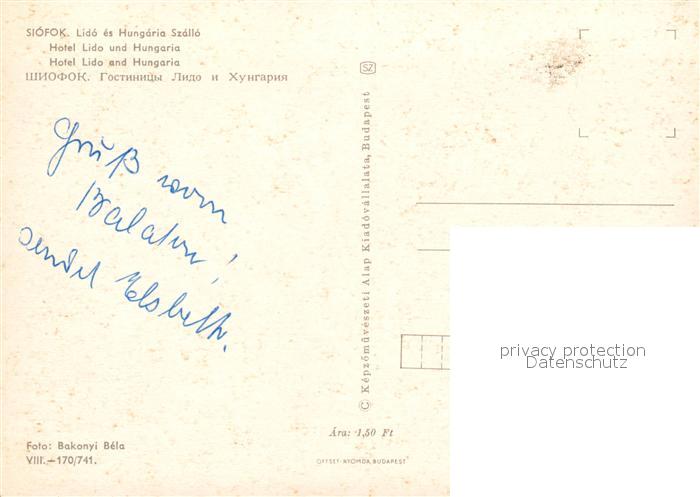 SIÓFOK. Lidó és Hungária Szálló
Hotel Lido und Hungaria
Hotel Lido and Hungaria
ШИОФОК. Гостиницы Лидо и Хунгария
Gruß vom
Balaton!
sendet Elsbeth.
SZ
© Képzőművészeti Alap Kiadóvállalata, Budapest
privacy protection
Datenschutz
Foto: Bakonyi Béla
VIII.—170/741.
Ára: 1,50 Ft
OFFSET-NYOMDA, BUDAPEST